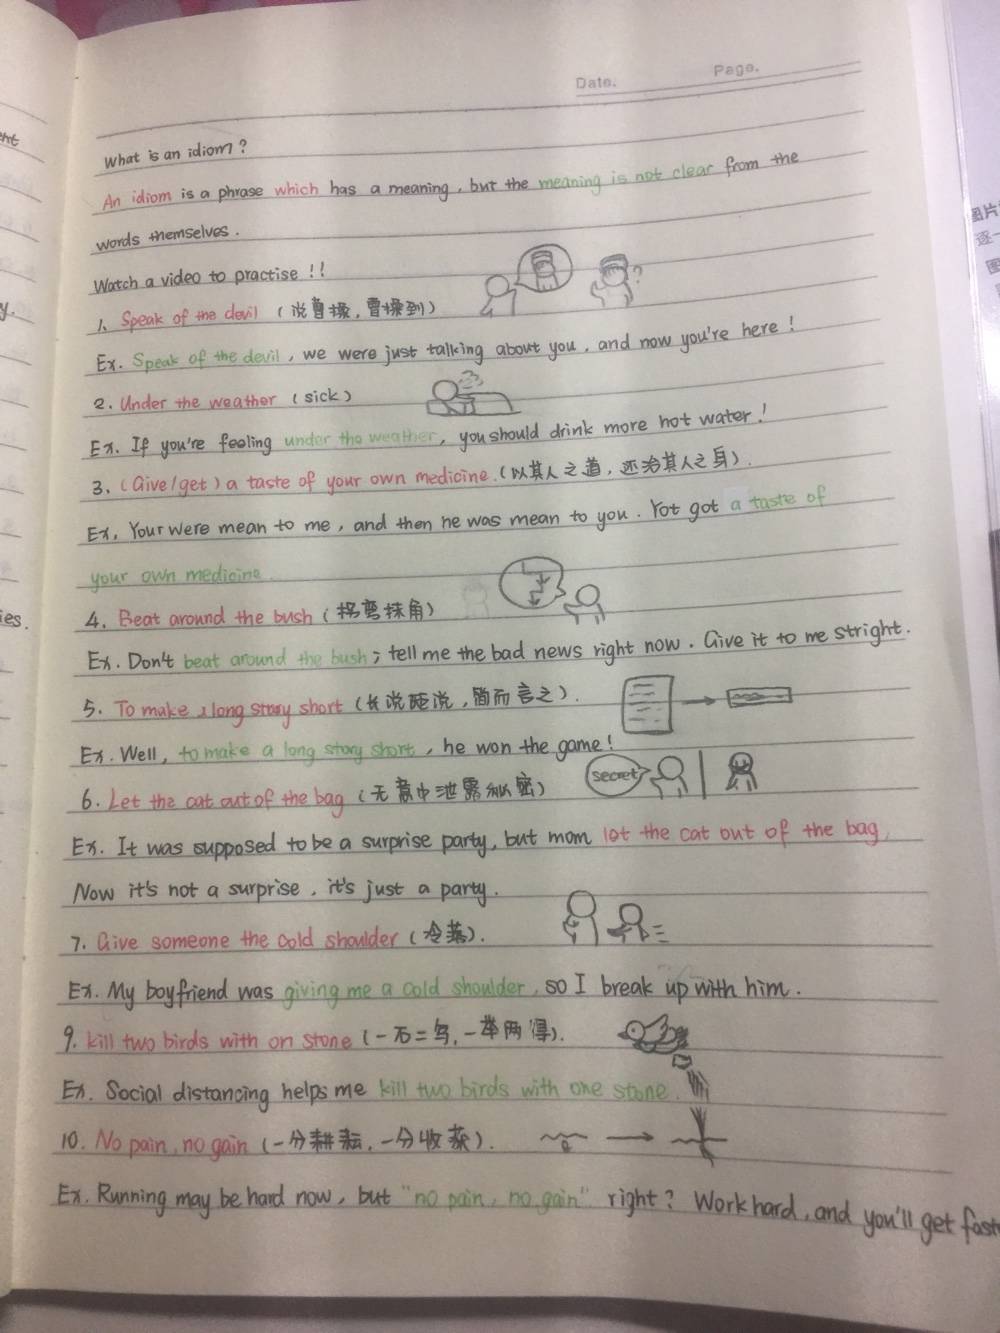 Date. Page.
What is an idiom?
An idiom is a phrase which has a meaning, but the meaning is not clear from the
words themselves.
Watch a video to practise!!
1. Speak of the devil (说曹操,曹操到)
Ex. Speak of the devil, we were just talking about you, and now you're here!
2. Under the weather (sick)
Ex. If you're feeling under the weather, you should drink more hot water!
3. (Give/get) a taste of your own medicine. (以其人之道,还治其人之身).
Ex. Your were mean to me, and then he was mean to you. Yot got a taste of
your own medicine.
4. Beat around the bush (拐弯抹角)
Ex. Don't beat around the bush; tell me the bad news right now. Give it to me stright.
5. To make a long story short (长说短说,简而言之).
Ex. Well, to make a long story short, he won the game!
6. Let the cat out of the bag (无意中泄露秘密)
secret
Ex. It was supposed to be a surprise party, but mom let the cat out of the bag,
Now it's not a surprise, it's just a party.
7. Give someone the cold shoulder (冷落).
Ex. My boyfriend was giving me a cold shoulder, so I break up with him.
9. kill two birds with on stone (一石二鸟,一举两得).
Ex. Social distancing helps me kill two birds with one stone.
10. No pain, no gain (一分耕耘,一分收获).
Ex. Running may be hard now, but "no pain, no gain" right? Work hard, and you'll get fast
ht
y.
ies.
图片
逐一
图